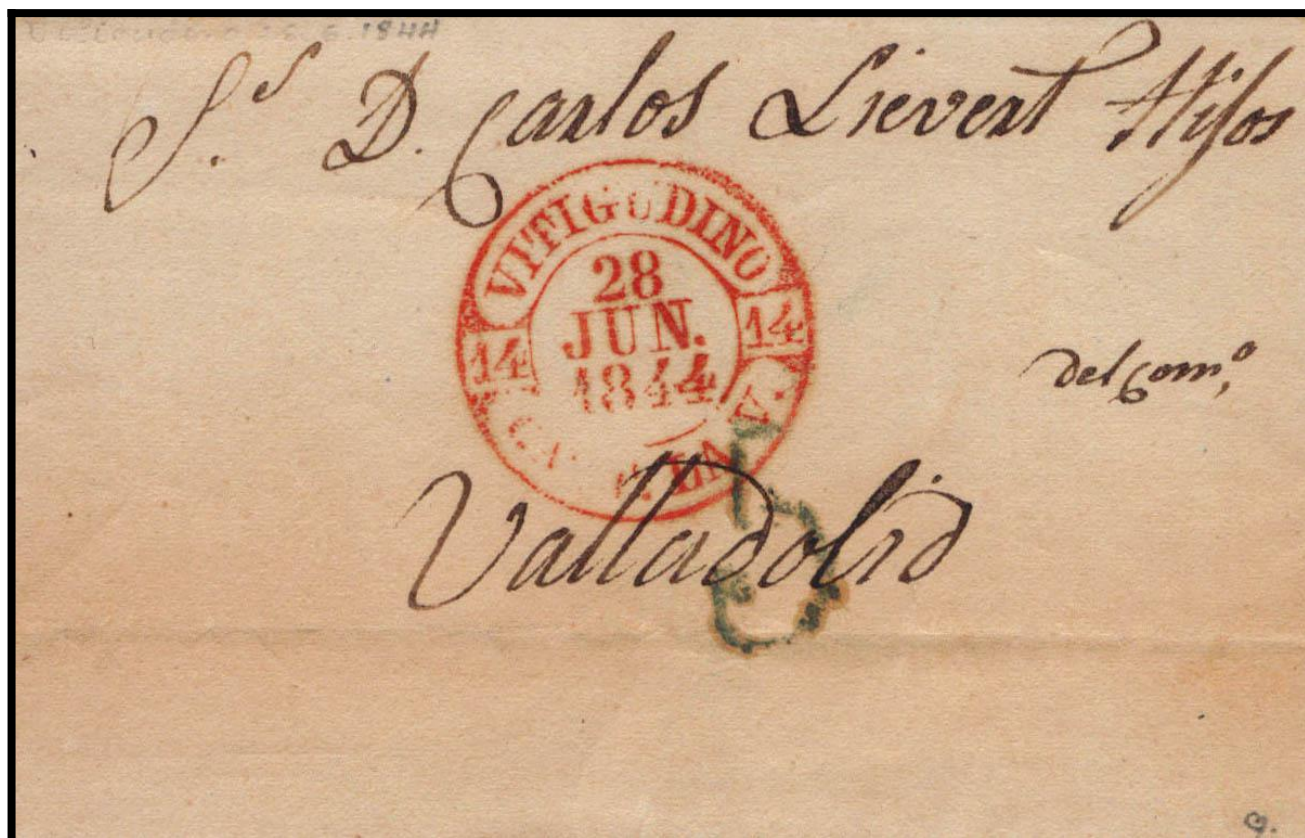 1844
S.s D. Carlos Lievert Hijos
VITIGUDINO
28
JUN.
1844
14
14
del Com.o
Valladolid